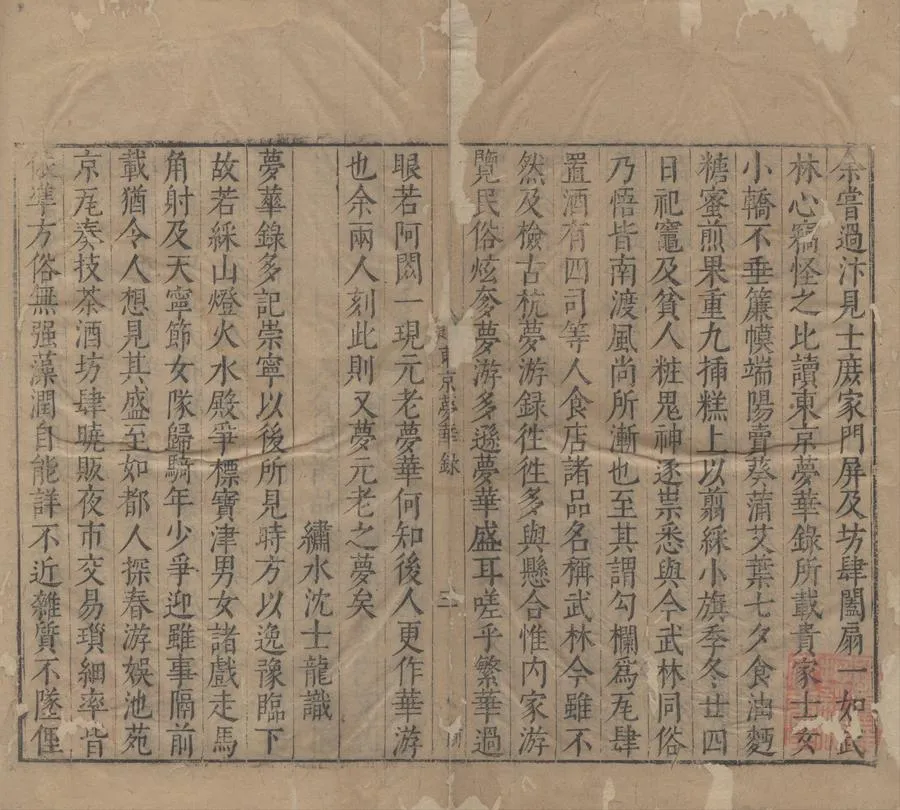 余嘗過汴見士庶家門屏及坊肆闔扇一如武
林心竊怪之比讀東京夢華錄所載貴家士女
小轎不垂簾幙端陽賣葵蒲艾葉七夕食油麪
糖蜜煎果重九揷糕上以剪綵小旗季冬廿四
日祀竈及貧人粧鬼神逐祟悉與今武林同俗
乃悟皆南渡風尚所漸也至其謂勾欄爲瓦肆
置酒有四司等人食店諸品名稱武林今雖不
然及檢古杭夢游録徃徃多與懸合惟内家游
覽民俗炫奓夢游多遜夢華盛耳嗟乎繁華過
東京夢華録
二
眼若阿閦一現元老夢華何知後人更作華游
也余兩人刻此則又夢元老之夢矣
繡水沈士龍識
夢華錄多記崇寧以後所見時方以逸豫臨下
故若綵山燈火水殿爭標寶津男女諸戲走馬
角射及天寧節女隊歸騎年少爭迎雖事隔前
載猶令人想見其盛至如都人探春游娱池苑
京瓦奏技茶酒坊肆曉販夜市交易瑣細率皆
依準方俗無强藻潤自能詳不近雜質不墜俚